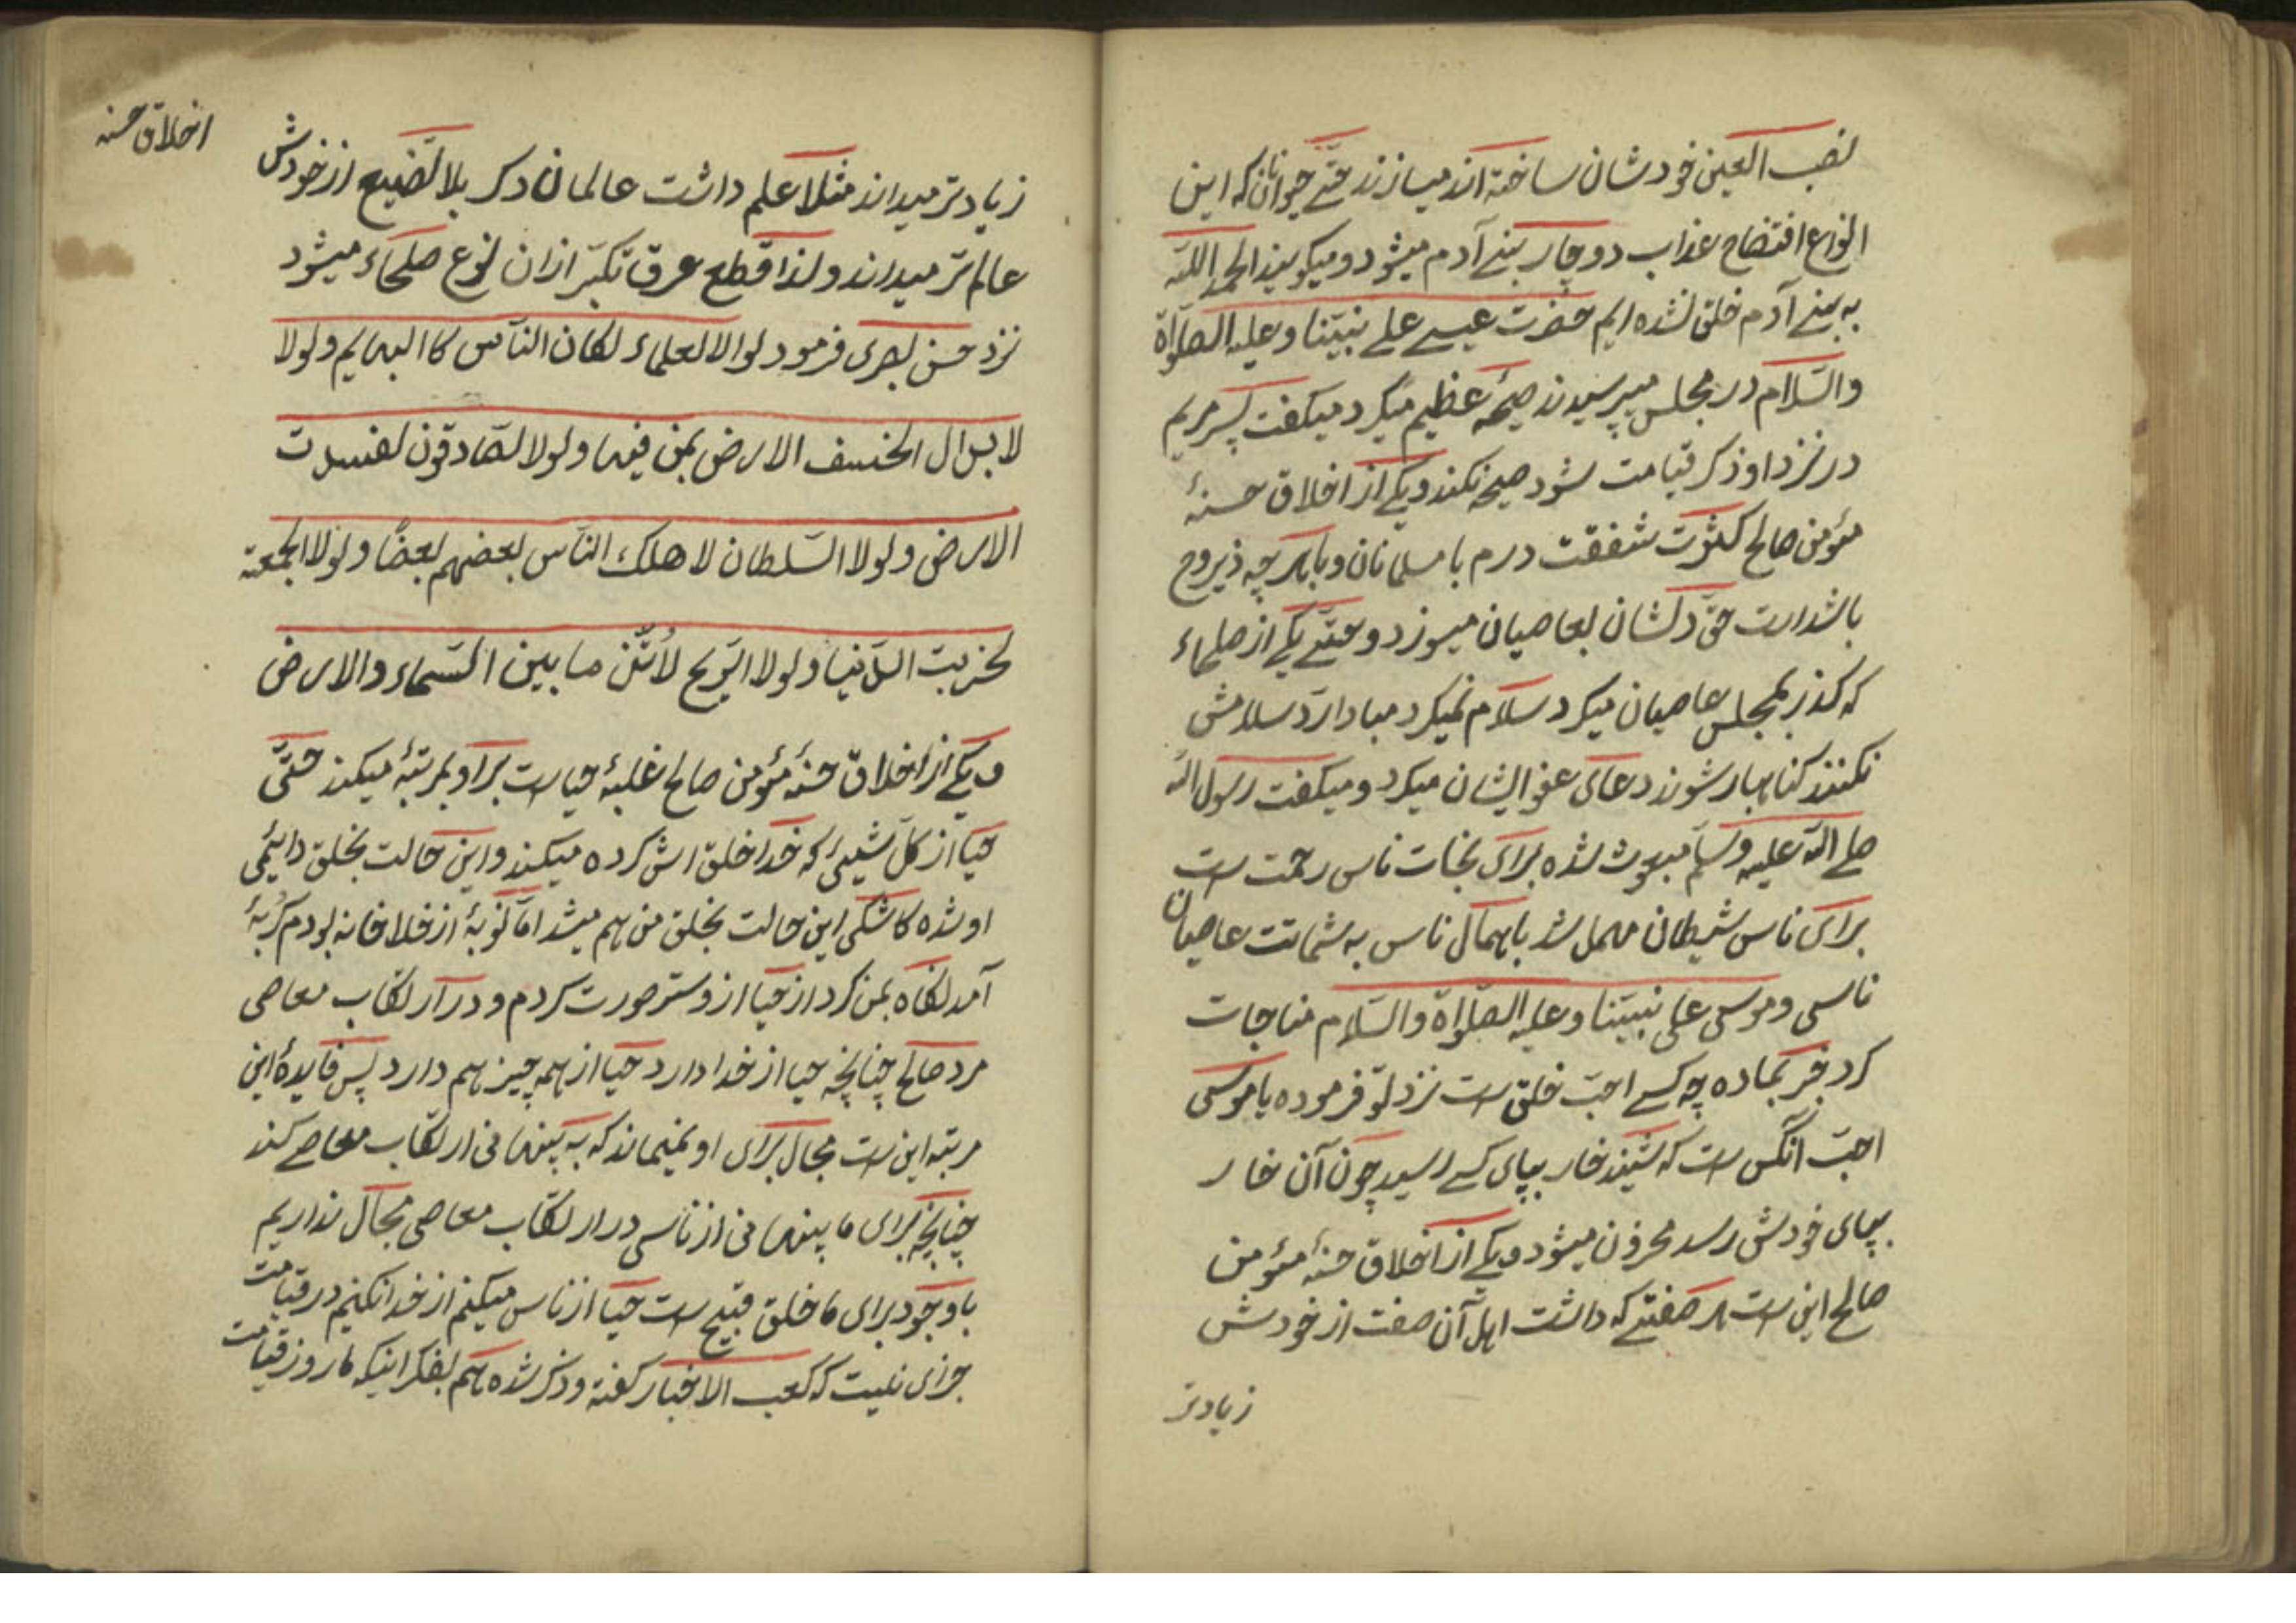 نصب العین خودشان ساخته اند میسازند حتّے حیوانان که این
انواع افتضاح عذاب دوچار بنے آدم میشود ومیکویند الحمد اللّه
به بنے آدم خلق نشده ایم حضرت عیسے علے نبیّنا وعلیه الصلواة
والسّلام در مجلس میپرسیدند صیحهٔ عظیم میکرد میکفت پسر مریم
در نزد او ذکر قیامت شود صیحه نکند ویکے از اخلاق حسنهٔ
مؤمن صالح کثرت شفقت درم با مسلمانان وباهر چه ذیروح
باشد است حتّی دلشان بعاصیان میسوزد وحتّے یکے از صلحاء
که کذر بمجلس عاصیان میکرد سلام نمیکرد مبادا ردّ سلامش
نکنند کناهبار شوند دعای عفو ایشان میکرد ومیکفت رسول اللّه
صلے اللّه علیه وسلّم مبعوث شده برای نجات ناس رحمت است
برای ناس شیطان مهمل شد باهمال ناس به شماتت عاصیان
ناسی وموسی علی نبیّنا وعلیه الصّلواة والسّلام مناجات
کرد خبر بماده چه کسے احبّ خلق است نزد تو فرموده یا موسی
احبّ آنکس است که شنید خار بپای کسے رسید چون آن خار
بپای خودش رسد محزون میشود ویکے از اخلاق حسنهٔ مؤمن
صالح این است هر صفتے که داشت اهل آن صفت از خودش
زیادتر
اخلاق حسنه
زیادتر میداند مثلا علم داشت عالمان دکر بلا تضییع از خودش
عالم تر میداند ولذا قطع عرق تکبّر ازان نوع صلحاء میشود
نزد حسن بصری فرمود لوالا لعلماء لکان النّاس کا البهایم ولولا
لابدال الخسف الارض بمن فیها ولولا لصّادقون لفسدت
الارض ولولا السّلطان لاهلک النّاس بعضهم بعضًا ولولا الجمعة
لخربت الدّنیا ولولا الرّیح لأنتن ما بین السّماء والارض
ویکے از اخلاق حسنهٔ مؤمن صالح غلبهٔ حیا است بر او بمرتبهٔ میکند حتّی
حیا از کلّ شیئی که خدا خلق اش کرده میکند واین حالت بخلق دایئمی
او شده کاشکی این حالت بخلق من هم میشد امّا نوبهٔ از خلاخانه بودم کربهٔ
آمد نکاه بمن کرد از حیا ازو ستر صورت کردم ودر ارتکاب معاصی
مرد صالح چنانچه حیا از خدا دارد حیا از همه چیز هم دارد پس فایدهٔ این
مرتبه این است مجال برای او نمیماند که به پنهانی ارتکاب معاصے کند
چنانچه برای ما پنهانی از ناسی در ارتکاب معاصی مجال نداریم
باوجود برای ما خلق قبیح است حیا از ناس میکنم از خدا نکنیم در قیامت
جزای نیست که کعب الاخبار کفته وذکر شده هم بفکر اینکه ما روز قیامت